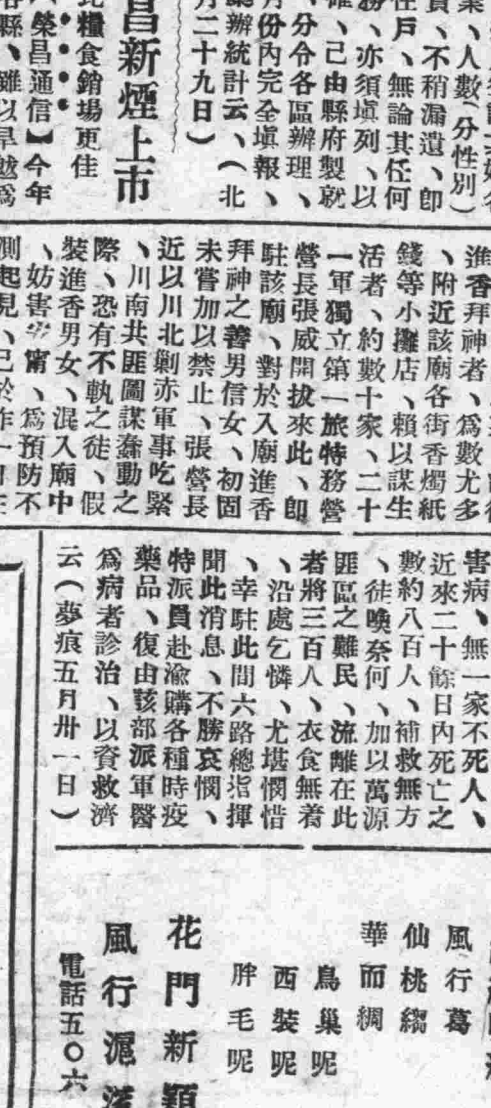 業、人數(分性別)
、不稍漏遺、卽
住戶、無論其任何
務、亦須塡列、以
確、己由縣府製就
、分令各區辦理、
月份內完全塡報、
辦統計云、(北
月二十九日)
昌新煙上市
糧食銷場更佳
榮昌通信】今年
各縣、雖以旱
進香拜神者、爲數尤多
、附近該廟各街香燭紙
錢等小攤店、賴以謀生
活者、約數十家、二十
一軍獨立第一旅特務營
營長張威開拔來此、卽
駐該廟、對於入廟進香
拜神之善男信女、初固
未嘗加以禁止、張營長
近以川北剿赤軍事吃緊
、川南共匪圖謀蠢動之
際、恐有不執之徒、假
裝進香男女、混入廟中
、妨害安甯、爲預防不
測起見、已於昨一日
害病、無一家不死人、
近來二十餘日內死亡之
數約八百人、補救無方
、徒喚奈何、加以萬源
匪區之難民、流離在此
者將三百人、衣食無着
、沿處乞憐、尤堪憫惜
、幸駐此間六路總指揮
聞此消息、不勝哀憫、
特派員赴渝購各種時疫
藥品、復由該部派軍醫
爲病者診治、以資救濟
云(夢痕五月卅一日)
風行葛
仙桃縐
華而綢
鳥巢呢
西裝呢
胖毛呢
花門新穎
風行滬
電話五〇六